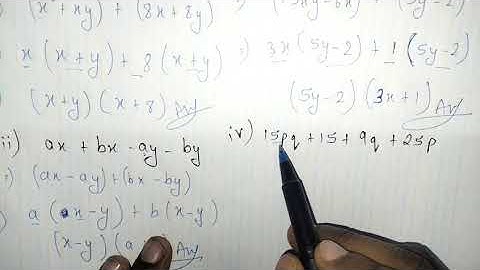 (x² + xy) + (8x + 8y)
x (x + y) + 8 (x + y)
(x + y) (x + 8) Ans
iii) ax + bx - ay - by
(ax - ay) + (bx - by)
a (x - y) + b (x - y)
(x - y) (a
Ans
(15xy - 6x) + (5y - 2)
3x (5y - 2) + 1 (5y - 2)
(5y - 2) (3x + 1) Ans
iv) 15pq + 15 + 9q + 25p